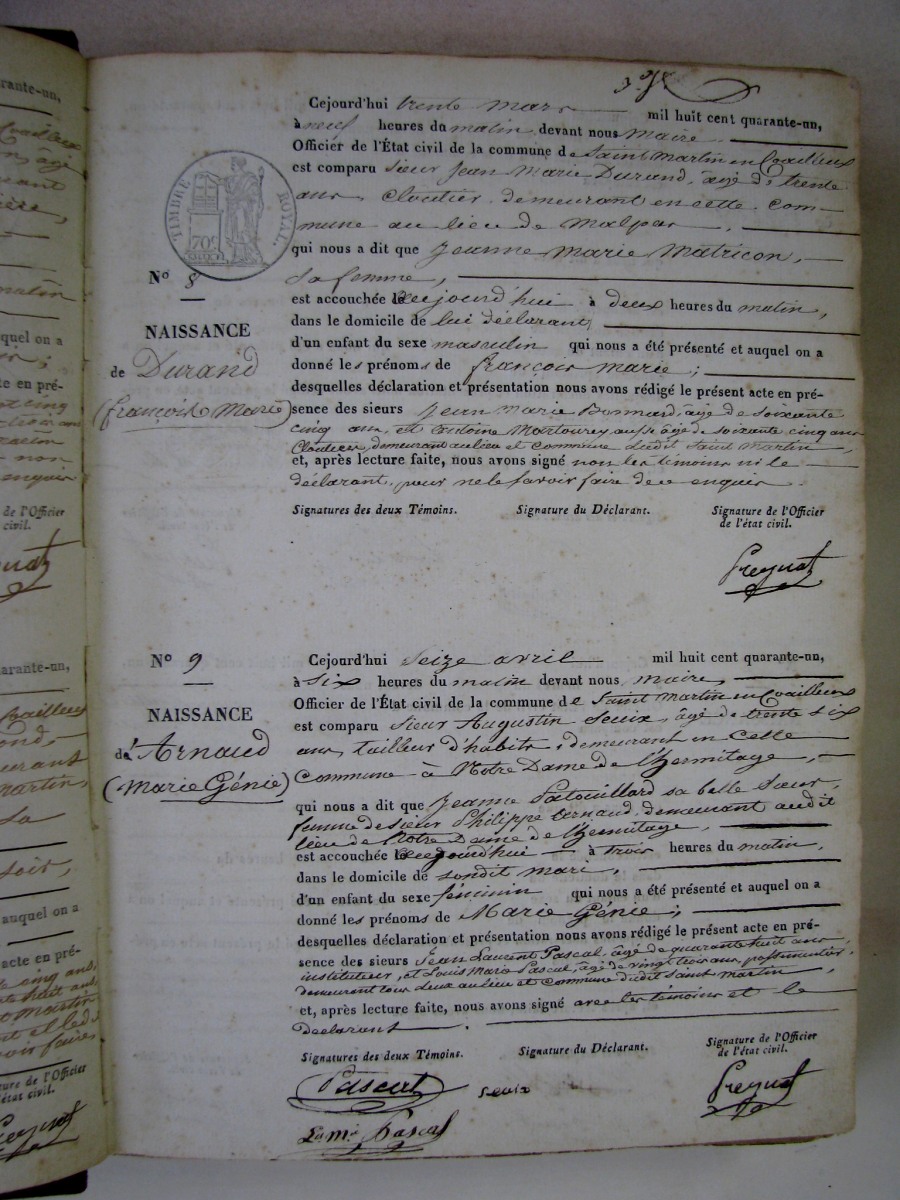 Cejourd'hui trente mars mil huit cent quarante-un,
à neuf heures du matin devant nous maire
Officier de l'État civil de la commune de Saint Martin en Coailleux
est comparu sieur Jean Marie Durand, âgé de trente
ans cloutier demeurant en cette com-
mune au lieu de Malpas
qui nous a dit que Jeanne Marie Matricon,
sa femme,
est accouchée cejourd'hui à deux heures du matin,
dans le domicile de lui déclarant,
d'un enfant du sexe masculin qui nous a été présenté et auquel on a
donné les prénoms de françois marie;
desquelles déclaration et présentation nous avons rédigé le présent acte en pré-
sence des sieurs Jean Marie Bonnard, âgé de soixante
cinq ans, et Antoine aussi âgé de soixante cinq ans
Cloutiers, demeurant au lieu et Commune dudit Saint Martin,
et, après lecture faite, nous avons signé non les témoins ni le
déclarant, pour ne le savoir faire de ce enquis.
Signatures des deux Témoins. Signature du Déclarant. Signature de l'Officier
de l'état civil.
TIMBRE ROYAL
70c
No 8
NAISSANCE
de Durand
(françois Marie)
No 9
NAISSANCE
d'Arnaud
(Marie Génie)
Cejourd'hui seize avril mil huit cent quarante-un,
à six heures du matin devant nous maire
Officier de l'État civil de la commune de Saint Martin en Coailleux
est comparu sieur Augustin Seux, âgé de trente six
ans, tailleur d'habits, demeurant en cette
Commune à Notre Dame de l'hermitage,
qui nous a dit que Jeanne Patouillard sa belle soeur,
femme de sieur Philippe Arnaud, demeurant audit
lieu de Notre Dame de l'hermitage,
est accouchée cejourd'hui à trois heures du matin,
dans le domicile de sondit mari,
d'un enfant du sexe féminin qui nous a été présenté et auquel on a
donné les prénoms de Marie Génie;
desquelles déclaration et présentation nous avons rédigé le présent acte en pré-
sence des sieurs Jean Laurent Pascal, âgé de quarante huit ans,
instituteur, et Louis Marie Pascal, âgé de vingt trois ans, passementier,
demeurant tous deux au lieu et Commune dudit Saint Martin,
et, après lecture faite, nous avons signé avec les témoins et le
déclarant.
Signatures des deux Témoins. Signature du Déclarant. Signature de l'Officier
de l'état civil.
Pascal Seux
Pascal